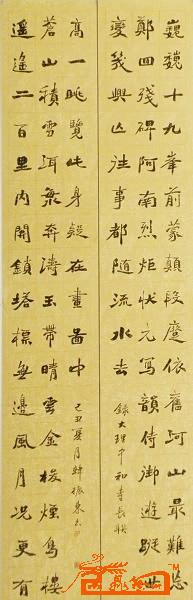 巍巍十九峯前蒙顛段蹙依舊河山最難忘
鄭回殘碑阿南烈炬狀元寫韻侍御遊蹤世
變幾興亡往事都隨流水去
錄大理中和寺長聯
遙遙二百里內開鎖塔標無邊風月况更有
蒼山積雪洱奔濤玉帶晴雲金梭煙島樓
高一眺覽此身疑在畫圖中
己丑夏月韓振東書